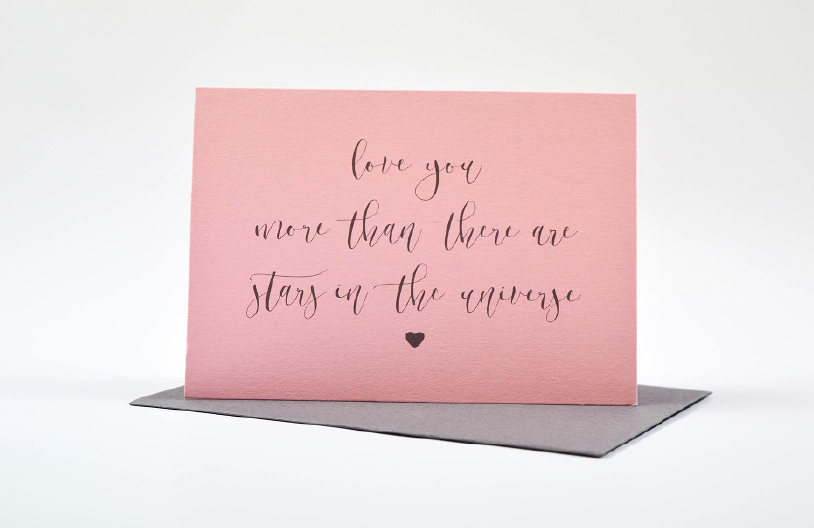 love you
more than there are
stars in the universe